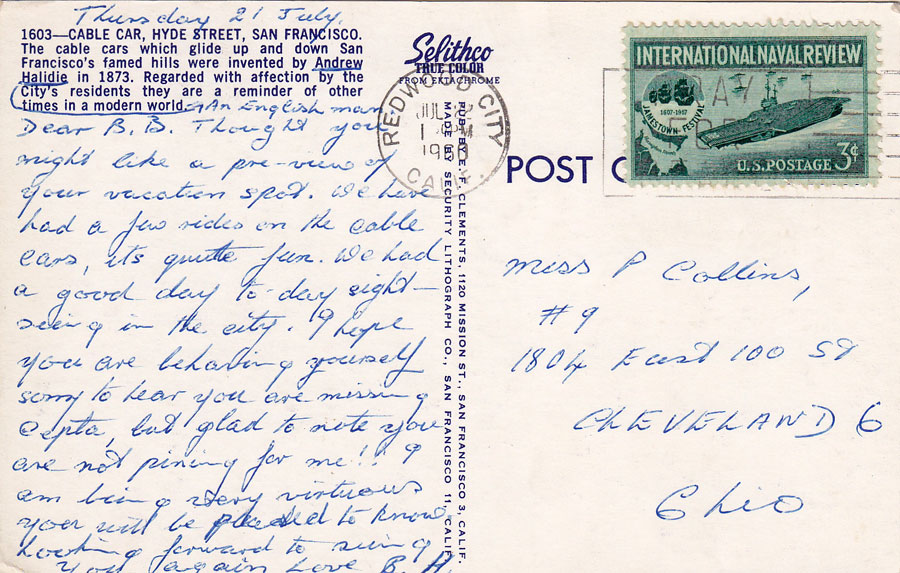 Thursday 21 July.
1603—CABLE CAR, HYDE STREET, SAN FRANCISCO.
The cable cars which glide up and down San
Francisco's famed hills were invented by Andrew
Halidie in 1873. Regarded with affection by the
City's residents they are a reminder of other
times in a modern world.
An English man
Dear B.B. Thought you
might like a pre-view of
your vacation spot. We have
had a few rides on the cable
cars, its quite fun. We had
a good day to-day sight-
seeing in the city. I hope
you are behaving yourself
sorry to hear you are missing
but glad to note you
are not pining for me!! I
am being very virtuous
you will be pleased to know
Looking forward to seeing
you again Love B. H.
Selithco
TRUE COLOR
FROM EKTACHROME
PUB. BY E. F. CLEMENTS, 1120 MISSION ST., SAN FRANCISCO 3, CALIF.
MADE BY SECURITY LITHOGRAPH CO., SAN FRANCISCO 11, CALIF.
REDWOOD CITY
JUL
1 PM
CALIF.
POST C
INTERNATIONAL NAVAL REVIEW
1607-1957
JAMESTOWN FESTIVAL
U.S. POSTAGE 3¢
Miss P Collins,
#9
1804 East 100 St
CLEVELAND 6
Ohio